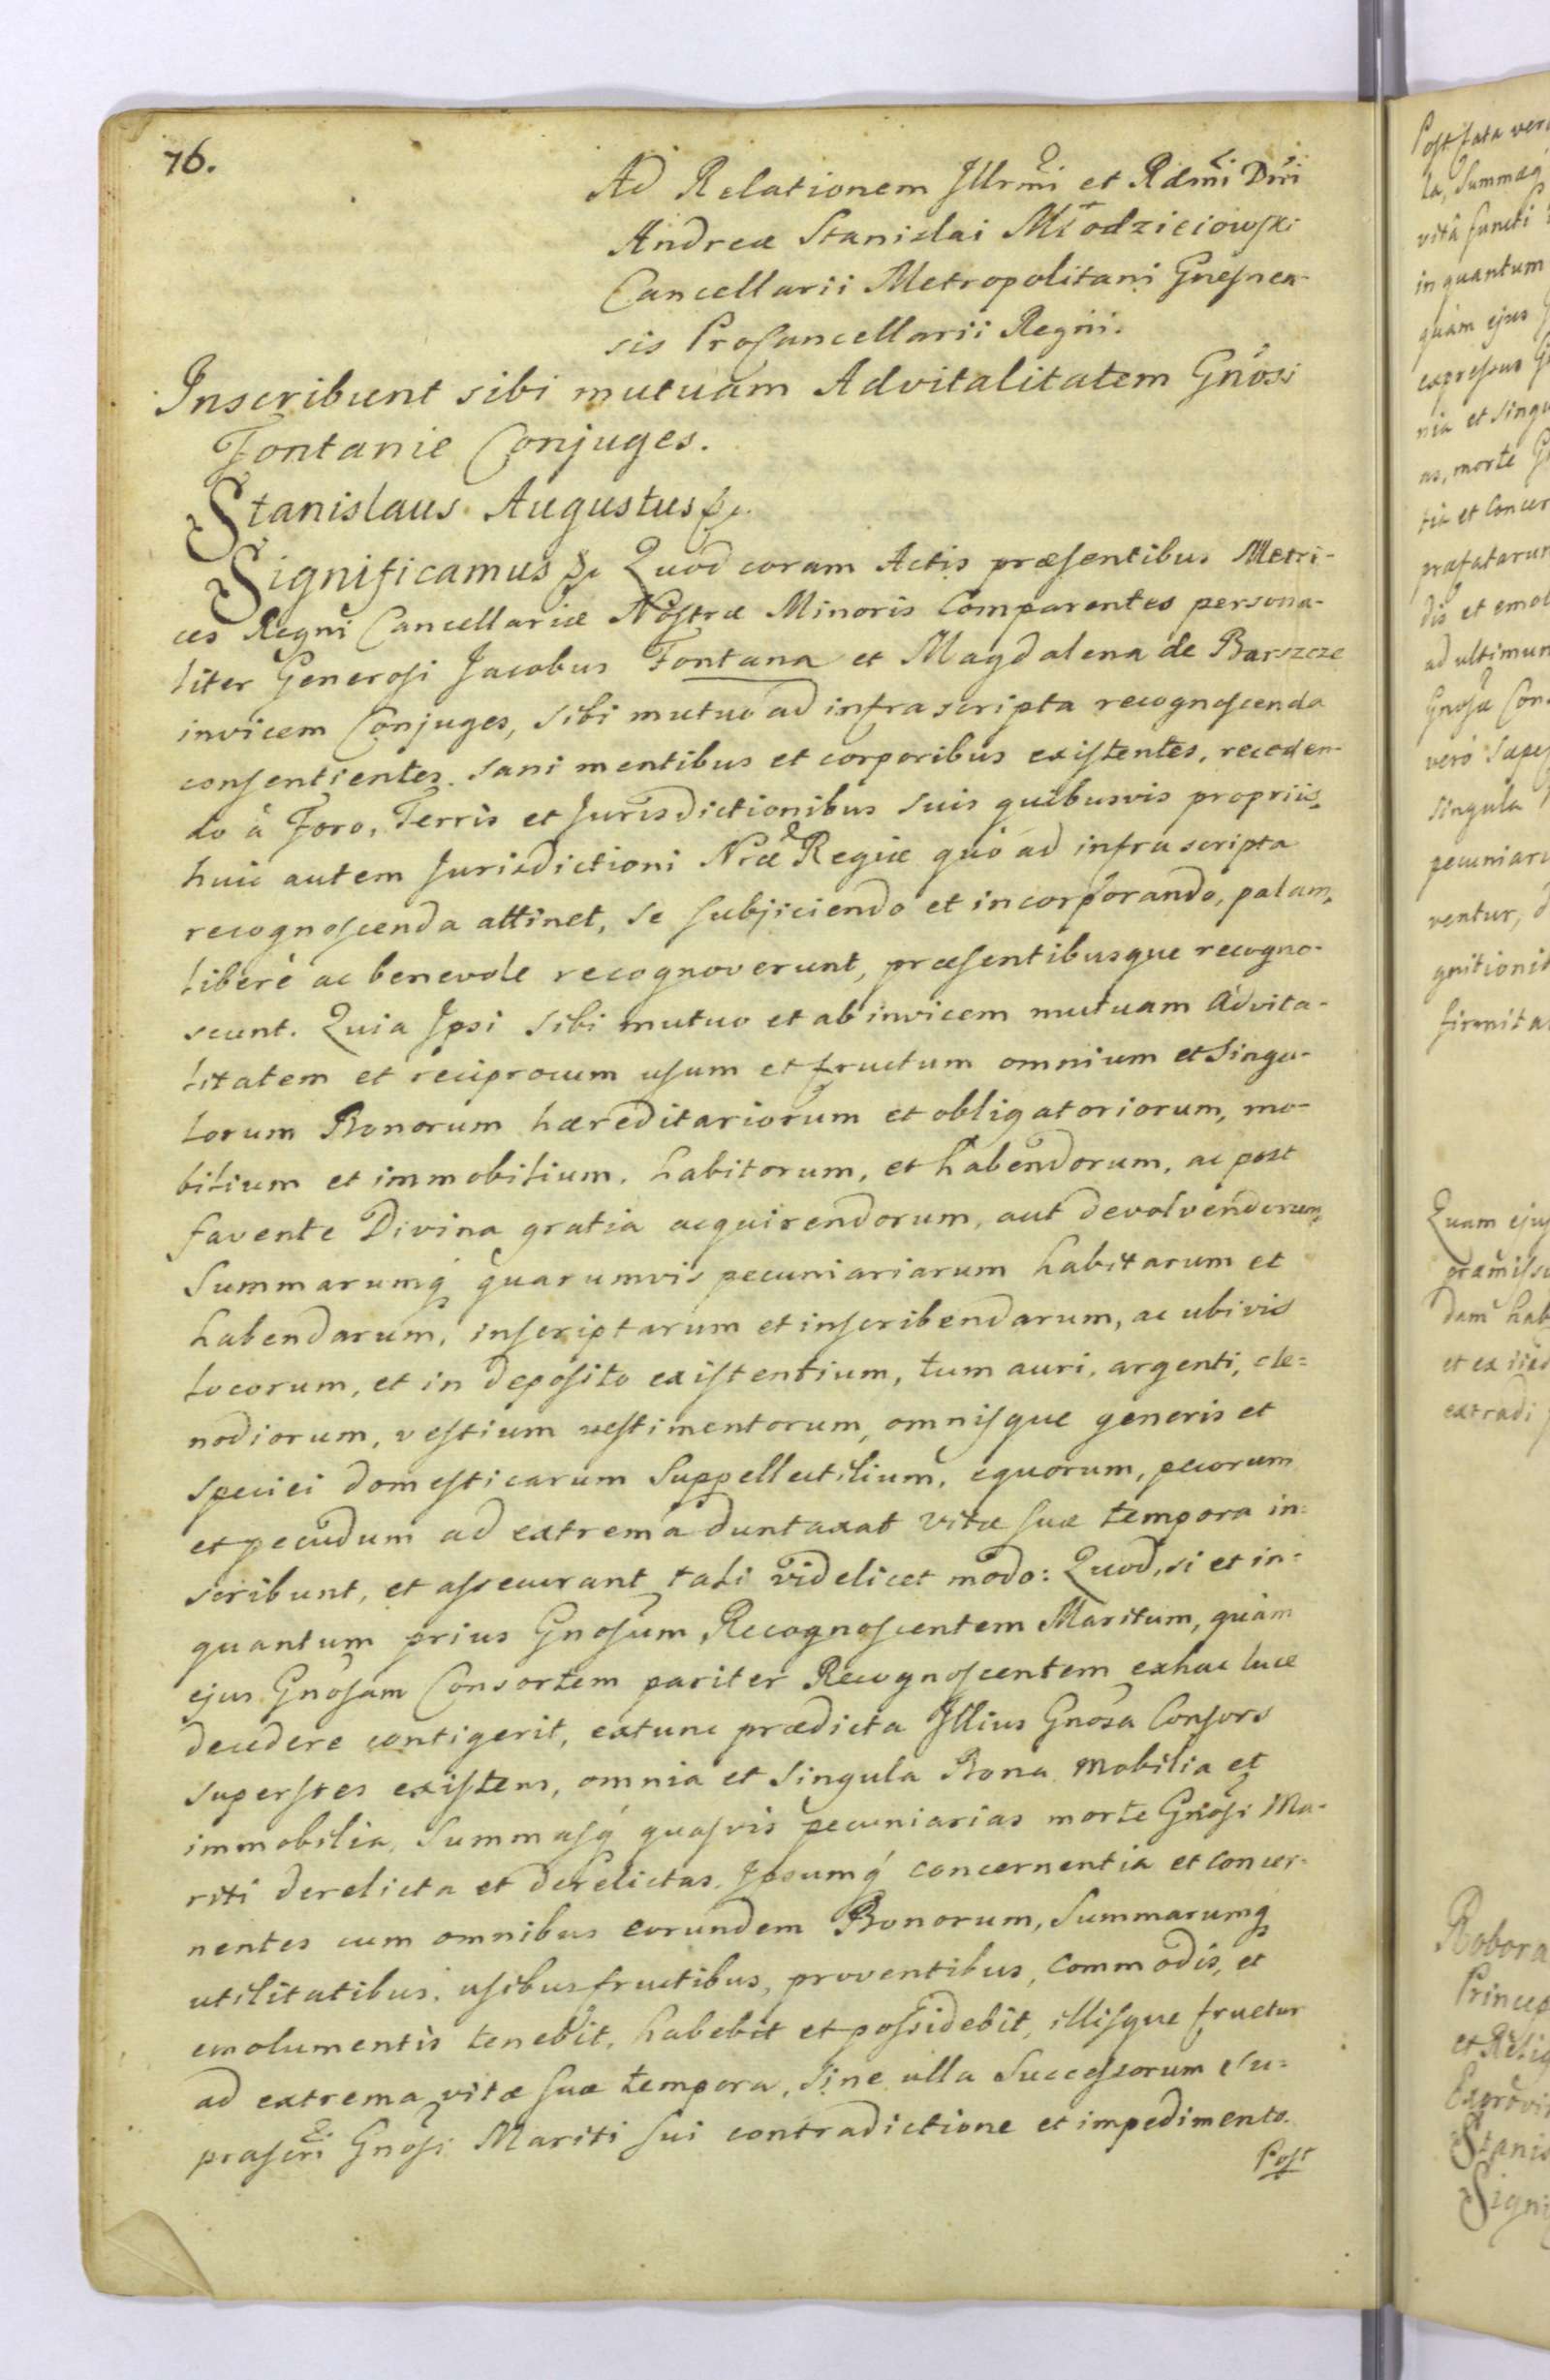 76.
Ad Relationem Illrmi et Rdmi Dni
Andreæ Stanislai Młodzieiowski
Cancellarii Metropolitani Gnesnen-
sis Procancellarii Regni.
Inscribunt sibi mutuam Advitalitatem Gnosi
Fontanie Conjuges.
Stanislaus Augustus &c.
Significamus &c Quod coram Actis præsentibus Metri-
ces Regni Cancellariæ Nostræ Minoris Comparentes persona-
liter Generosi Jacobus Fontana et Magdalena de Barszcze
invicem Conjuges, sibi mutuo ad infrascripta recognoscenda
consentientes. sani mentibus et corporibus existentes, receden-
do à Foro, Terris et Jurisdictionibus suis quibusvis propriis,
huic autem Jurisdictioni Nræ Regiæ quò ad infrascripta
recognoscenda attinet, se subjiciendo et incorporando, palam,
liberè ac benevole recognoverunt, præsentibusque recogno-
scunt. Quia Ipsi sibi mutuo et ab invicem mutuam Advita-
litatem et reciprocum usum et fructum omnium et singu-
lorum Bonorum hæreditariorum et obligatoriorum, mo-
bilium et immobilium, habitorum, et habendorum, ac post
favente Divina gratia acquirendorum, aut devolvendorum,
Summarumq́ quarumvis pecuniariarum habitarum et
habendarum, inscriptarum et inscribendarum, ac ubivis
locorum, et in deposito existentium, tum auri, argenti, cle=
nodiorum, vestium vestimentorum, omnisque generis et
speciei domesticarum Suppellectilium, equorum, pecorum
et pecudum ad extrema duntaxat vitæ suæ tempora in=
scribunt, et assecurant tali videlicet modo: Quod, si et in=
quantum prius Gnosum Recognoscentem Maritum, quàm
ejus Gnosam Consortem pariter Recognoscentem ex hac luce
decedere contigerit, extunc prædicta Illius Gnosa Consors
superstes existens, omnia et singula Bona mobilia et
immobilia, Summasq́ quasvis pecuniarias morte Gnosi Ma-
riti derelicta et derelictas. Ipsumq́ concernentia et concer-
nentes cum omnibus eorundem Bonorum, Summarumq́
utilitatibus, usibusfructibus, proventibus, commodis, et
emolumentis tenebit, habebit et possidebit, illisque fruetur
ad extrema vitæ suæ tempora, sine ulla Successorum su=
prascri Gnosi Mariti sui contradictione et impedimento.
Post
Post fata ver
la, Summaq
vitâ functi
in quantum
quàm ejus
expressus
nia et singu
as, morte
tia et concer
præfatarum
dis et emol
ad ultimum
Gnosa Con
verò
singula
pecuniari
ventur,
gnitionis
firmita
Quam ejus
præmisso
dam hab
et ex iisd
extradi
Robora
Princep
et Relig
Stanis
Signi